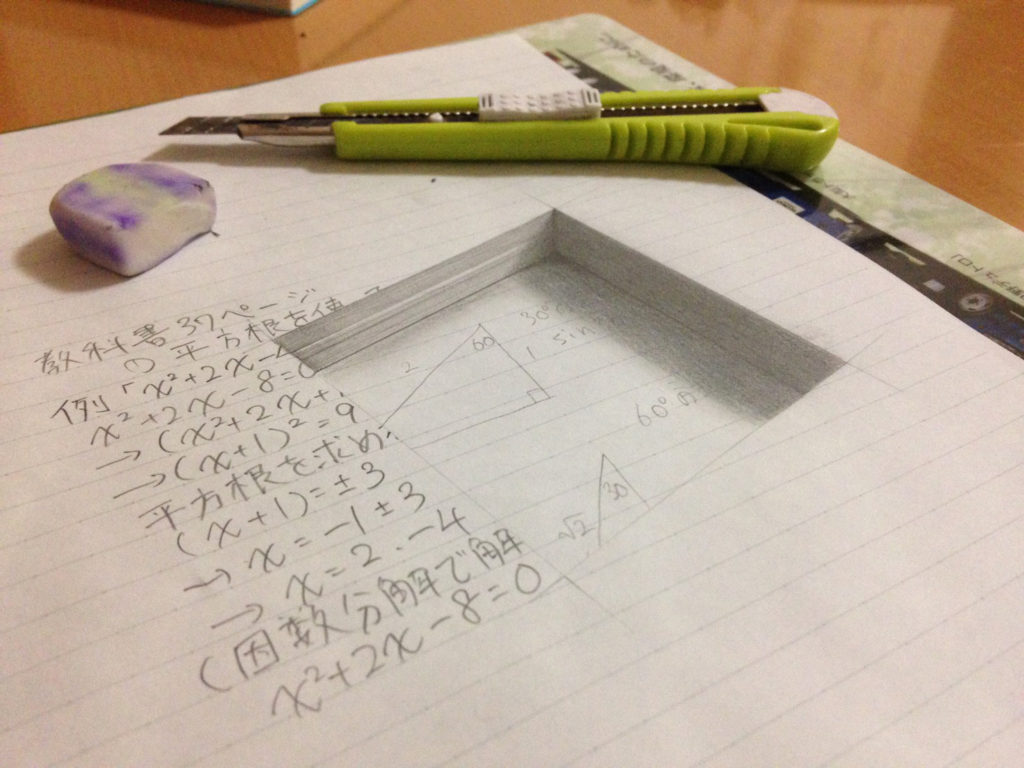 教科書37ページ
の平方根を使
例「x²+2x-
x²+2x-8=0
→(x²+2x+
→(x+1)²=9
平方根を求め
(x+1)=±3
→x=-1±3
→x=2.-4
(因数分解で解
x²+2x-8=0
2
60
1
30°
sin
60°
30
√2